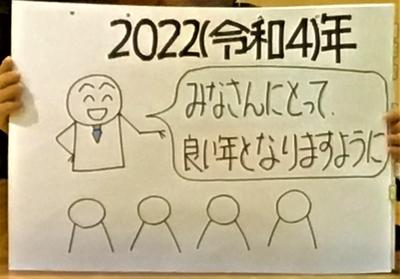 2022(令和4)年
みなさんにとって、
良い年となりますように